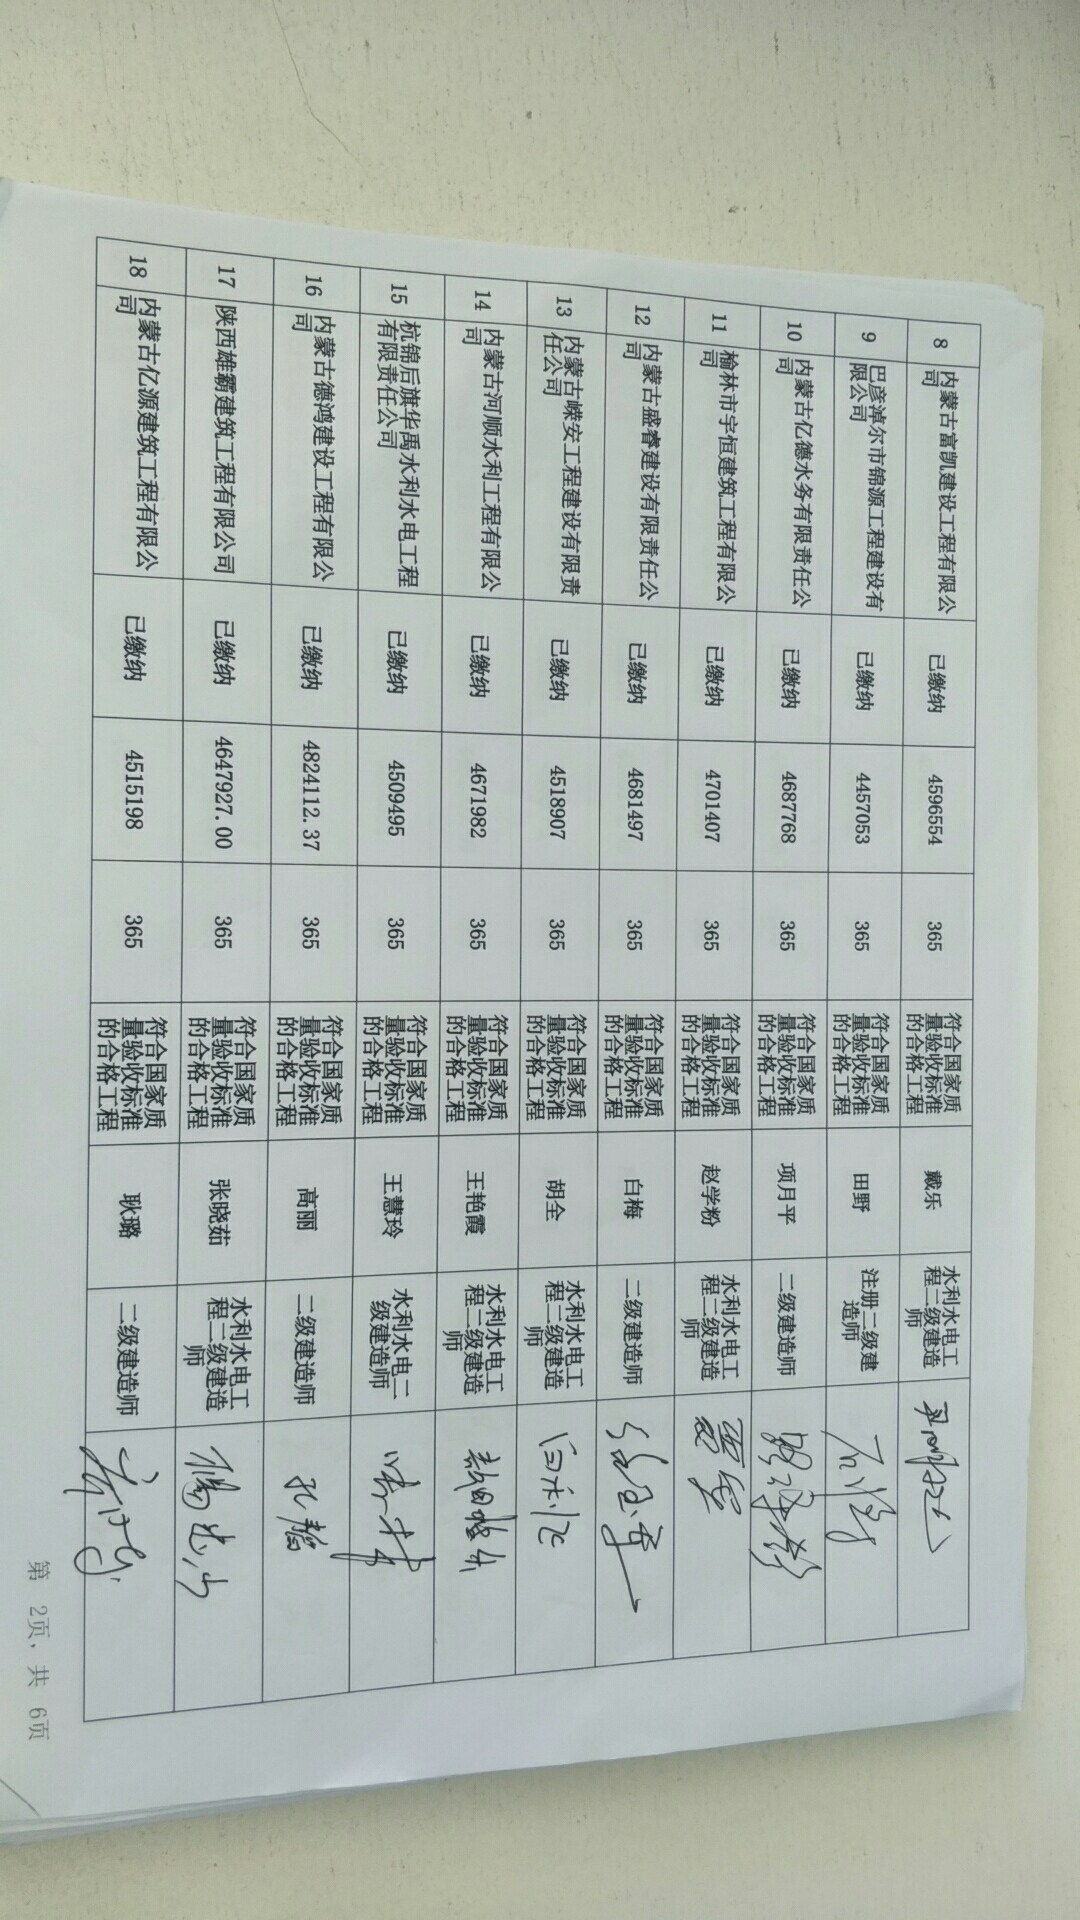 8 内蒙古富凯建设工程有限公司 已缴纳 4596554 365 符合国家质量验收标准的合格工程 戴乐 水利水电工程二级建造师
9 巴彦淖尔市锦源工程建设有限公司 已缴纳 4457053 365 符合国家质量验收标准的合格工程 田野 注册二级建造师
10 内蒙古亿德水务有限责任公司 已缴纳 4687768 365 符合国家质量验收标准的合格工程 项月平 二级建造师
11 榆林市宇恒建筑工程有限公司 已缴纳 4701407 365 符合国家质量验收标准的合格工程 赵学粉 水利水电工程二级建造师
12 内蒙古盛睿建设有限责任公司 已缴纳 4681497 365 符合国家质量验收标准的合格工程 白梅 二级建造师
13 内蒙古嵘安工程建设有限责任公司 已缴纳 4518907 365 符合国家质量验收标准的合格工程 胡全 水利水电工程二级建造师
14 内蒙古河顺水利工程有限公司 已缴纳 4671982 365 符合国家质量验收标准的合格工程 王艳霞 水利水电工程二级建造师
15 杭锦后旗华禹水利水电工程有限责任公司 已缴纳 4509495 365 符合国家质量验收标准的合格工程 王慧玲 水利水电二级建造师
16 内蒙古德鸿建设工程有限公司 已缴纳 4824112.37 365 符合国家质量验收标准的合格工程 高丽 二级建造师
17 陕西雄霸建筑工程有限公司 已缴纳 4647927.00 365 符合国家质量验收标准的合格工程 张晓茹 水利水电工程二级建造师
18 内蒙古亿源建筑工程有限公司 已缴纳 4515198 365 符合国家质量验收标准的合格工程 耿璐 二级建造师
第 2页，共 6页